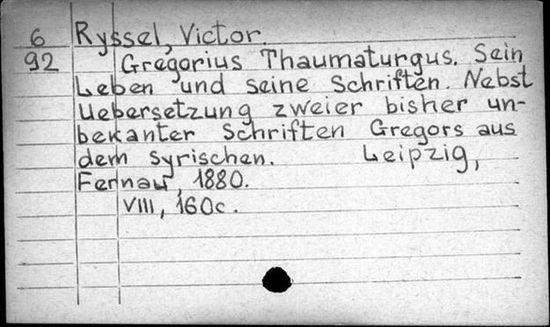 6 Ryssel, Victor.
92 Gregorius Thaumaturgus. Sein
Leben und seine Schriften. Nebst
Uebersetzung zweier bisher un-
bekanter Schriften Gregors aus
dem Syrischen. Leipzig,
Fernau, 1880.
VIII, 160c.